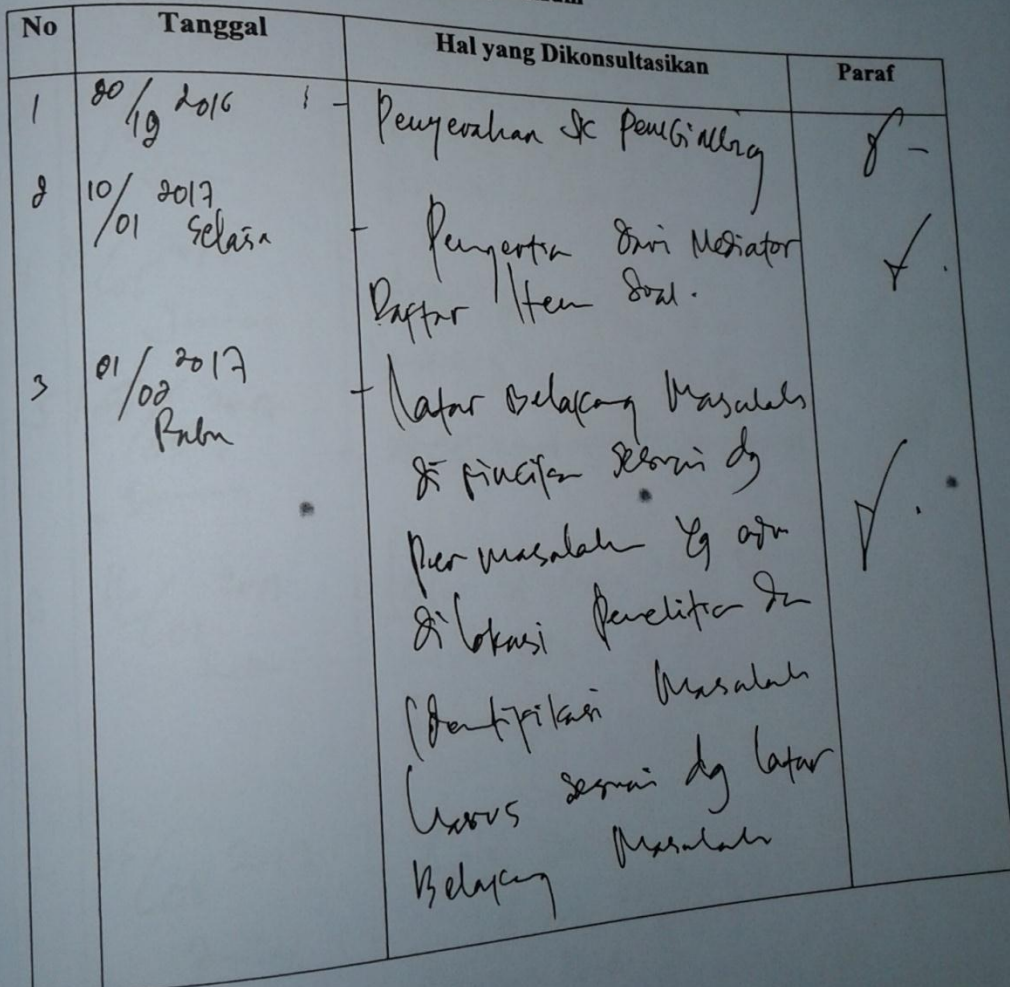 No Tanggal Hal yang Dikonsultasikan Paraf
1 20/19 2016 - Penyerahan SK Pembimbing
2 10/01 2017 - Pengertian dari Mediator
Selasa Daftar Item Soal.
3 01/02 2017 - Latar Belakang Masalah
Rabu di rincikan sesuai dg
permasalah yg ada
dilokasi Penelitian dan
Identifikasi Masalah
Harus sesuai dg latar
Belakang Masalah